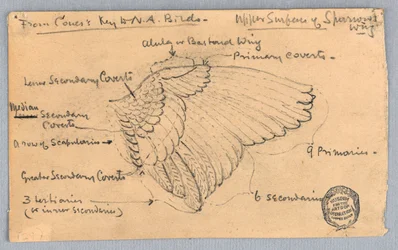 From Coues's Key to N.A. Birds.
Upper Surface of Sparrow's
Wing
Alula or Bastard Wing
Primary coverts.
Lesser Secondary Coverts
Median
Secondary
Coverts
A row of Scapularies
Greater Secondary Coverts
9 Primaries.
3 tertiaries
(or inner secondaries)
6 secondaries